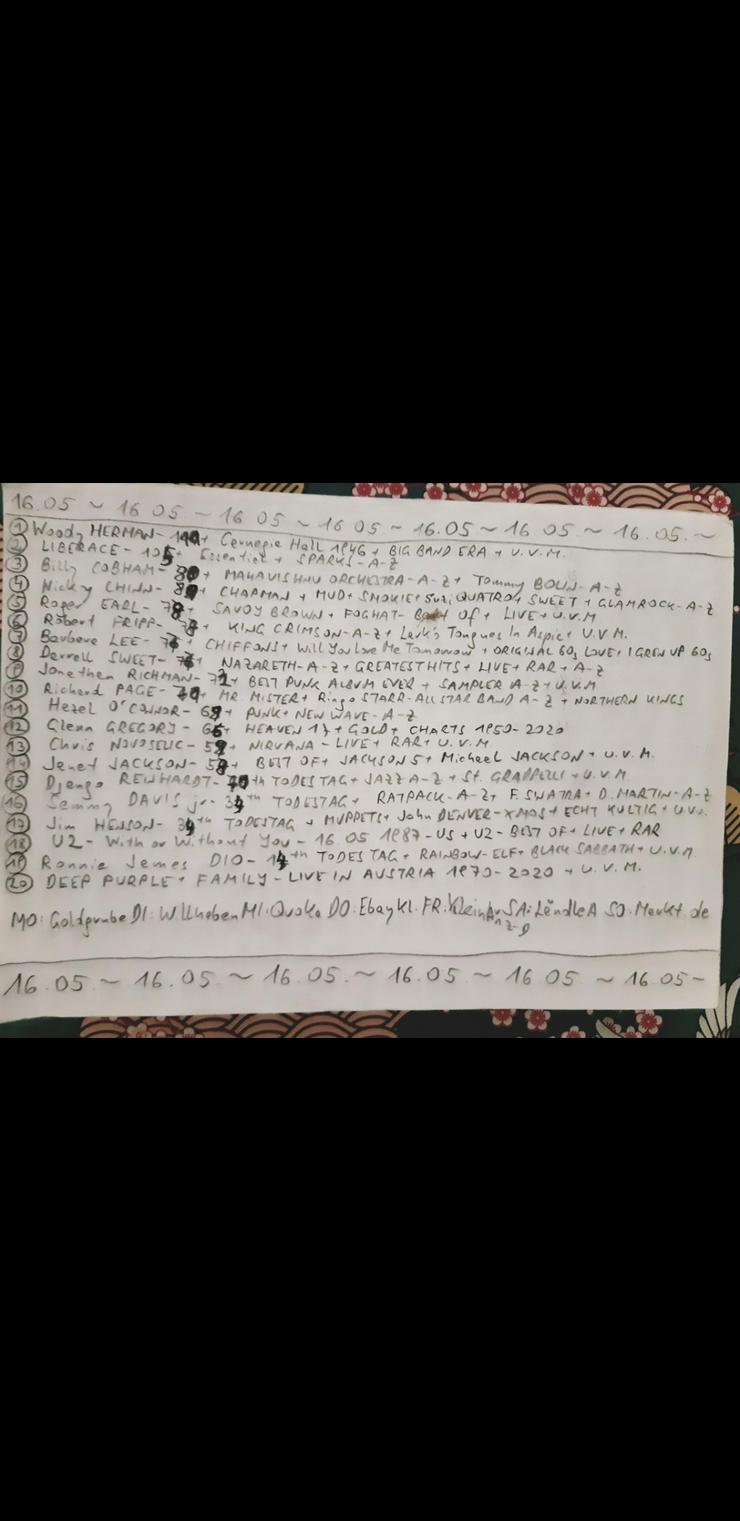 16.05 ~ 16 05 ~ 16 05 ~ 16 05 ~ 16.05 ~ 16.05 ~ 16.05. ~
① Woody HERMAN- + Carnegie Hall 1946 + BIG BAND ERA + U.V.M.
② LIBERACE - 105+ Essential + SPARKS - A-Z
③ Billy COBHAM- 80+ MAHAVISHNU ORCHESTRA-A-Z+ Tommy BOLIN-A-Z
④ Nicky CHINN- + CHAPMAN + MUD+ SMOKIE+ Suzi QUATRO+ SWEET + GLAMROCK-A-Z
⑤ Roger EARL- 78+ SAVOY BROWN + FOGHAT- Best Of + LIVE+U.V.M
⑥ Robert FRIPP- 78+ KING CRIMSON-A-Z+ Lark's Tongues In Aspic+ U.V.M.
⑦ Barbara LEE- + CHIFFONS+ Will You Love Me Tomorrow + ORIGINAL 60s LOVE+ I GREW UP 60s
⑧ Darrell SWEET- + NAZARETH-A-Z+GREATEST HITS + LIVE+ RAR + A-Z
⑨ Jonathan RICHMAN- + BEST PUNK ALBUM EVER + SAMPLER A-Z+U.V.M
⑩ Richard PAGE- + MR MISTER+ Ringo STARR-ALL STAR BAND A-Z + NORTHERN KINGS
⑪ Hazel O'CONNOR- 69+ PUNK+ NEW WAVE-A-Z
⑫ Glenn GREGORY- 66+ HEAVEN 17+ GOLD+ CHARTS 1950-2020
⑬ Chris NOVOSELIC- 59+ NIRVANA - LIVE+ RAR+ U.V.M
⑭ Janet JACKSON- 58+ BEST OF+ JACKSON 5+ Michael JACKSON + U.V.M.
⑮ Django REINHARDT- th TODESTAG+ JAZZ A-Z+ St. GRAPPELLI+U.V.M
⑯ Sammy DAVIS jr- 34th TODESTAG+ RATPACK-A-Z+ F. SINATRA+ D. MARTIN-A-Z
⑰ Jim HENSON- 34th TODESTAG + MUPPETS+ John DENVER-XMAS+ ECHT KULTIG+U.V.M.
⑱ U2- With or Without You - 16 05 1987-US + U2-BEST OF + LIVE+ RAR
⑲ Ronnie James DIO- 14th TODESTAG+ RAINBOW-ELF+ BLACK SABBATH + U.V.M.
⑳ DEEP PURPLE+ FAMILY-LIVE IN AUSTRIA 1970-2020 + U.V.M.
MO: Goldgrube DI: Willhaben MI: Quoka DO: Ebay Kl. FR: KleinAnz-D SA: LändleA SO: Markt.de
16.05. ~ 16.05. ~ 16.05. ~ 16.05. ~ 16 05 ~ 16.05-